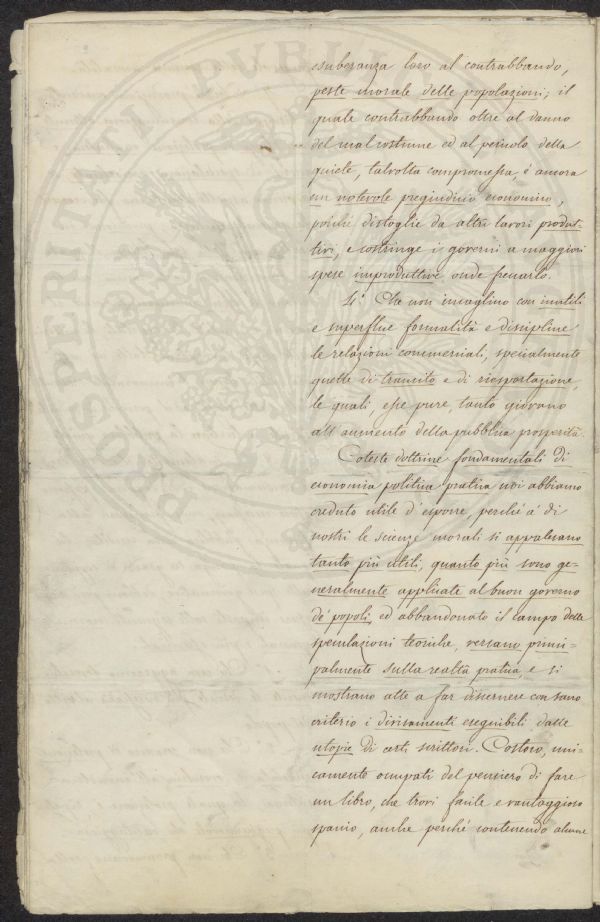 esuberanza loro al contrabbando,
peste morale delle popolazioni; il
quale contrabbando oltre al danno
del mal costume ed al pericolo della
quiete, talvolta compromessa, è ancora
un notevole pregiudizio economico,
poichè distoglie da altri lavori produt-
tivi, e costringe i governi a maggiori
spese improduttive onde frenarlo.
4.° Che non incaglino con inutili
e superflue formalità e discipline
le relazioni commerciali, specialmente
quelle di transito e di riesportazione,
le quali, esse pure, tanto giovano
all'aumento della pubblica prosperità.
Coteste dottrine fondamentali di
economia politica pratica noi abbiamo
creduto utile d'esporre, perchè a' dì
nostri le scienze morali si appalesano
tanto più utili, quanto più sono ge-
neralmente applicate al buon governo
de' popoli, ed abbandonato il campo delle
speculazioni teoriche, versano princi-
palmente sulla realtà pratica, e si
mostrano atte a far discernere con sano
criterio i divisamenti eseguibili dalle
utopie di certi scrittori. Costoro, uni-
camente occupati del pensiero di fare
un libro, che trovi facile e vantaggioso
spaccio, anche perchè contenendo alcune
PROSPERITATI PVBLIC